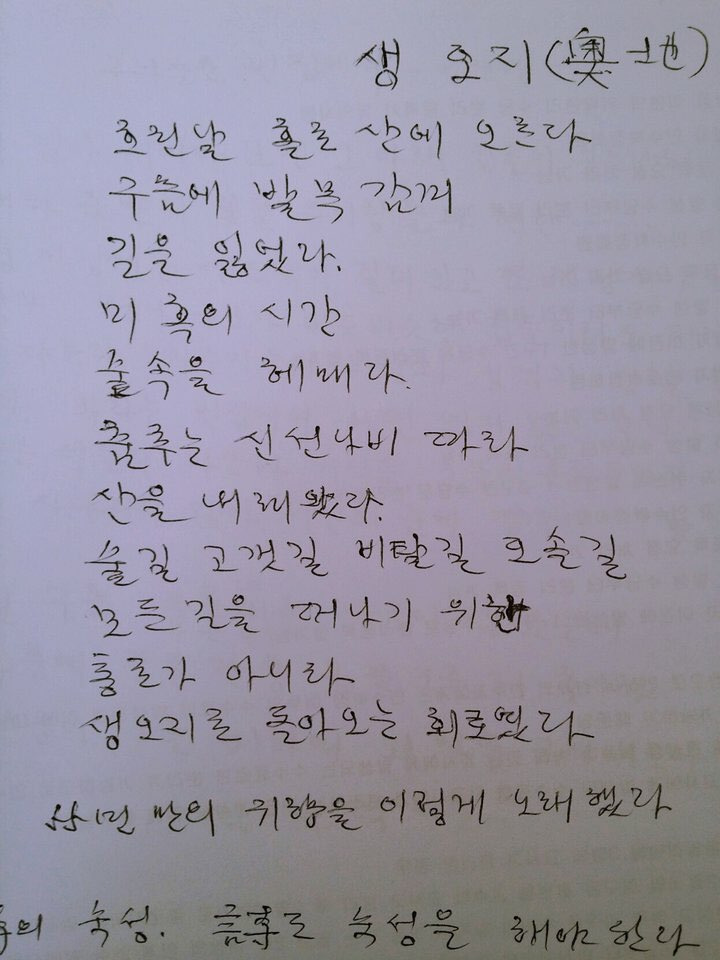 생 오지(奧地)
흐린날 홀로 산에 오르다
구름에 발목 감겨
길을 잃었다.
미혹의 시간
숲속을 헤매다.
춤추는 신선나비 따라
산을 내려왔다.
숲길 고갯길 비탈길 오솔길
모든길을 떠나기 위한
통로가 아니라
생오지로 돌아오는 회로였다
만의 귀향을 이렇게 노래했다
숙성. 도 숙성을 해야 한다